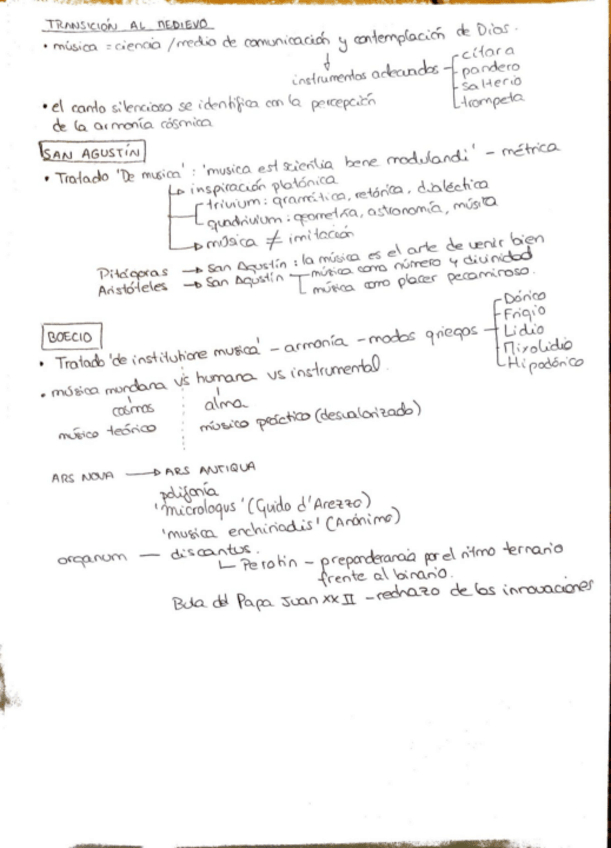 TRANSICIÓN AL MEDIEVO
• música = ciencia / medio de comunicación y contemplación de Dios.
instrumentos adecuados
cítara
pandero
salterio
trompeta
• el canto silencioso se identifica con la percepción
de la armonía cósmica
SAN AGUSTÍN
• Tratado 'De musica' : 'musica est scientia bene modulandi' - métrica
inspiración platónica
trivium: gramática, retórica, dialéctica
quadrivium: geometría, astronomía, música
música ≠ imitación
Pitágoras → San Agustín : la música es el arte de venir bien
Aristóteles → San Agustín
música como número y divinidad
música como placer pecaminoso.
BOECIO
• Tratado 'de institutione musica' - armonía - modos griegos
Dórico
Frigio
Lidio
Mixolidio
Hipodórico
• música mundana vs humana vs instrumental
cosmos
alma
músico teórico
músico práctico (desvalorizado)
ARS NOVA → ARS ANTIQUA
polifonía
'Micrologus' (Guido d'Arezzo)
'musica enchiriadis' (Anónimo)
organum — discantus.
Perotin - preponderancia por el ritmo ternario
frente al binario.
Bula del Papa Juan XXII - rechazo de las innovaciones